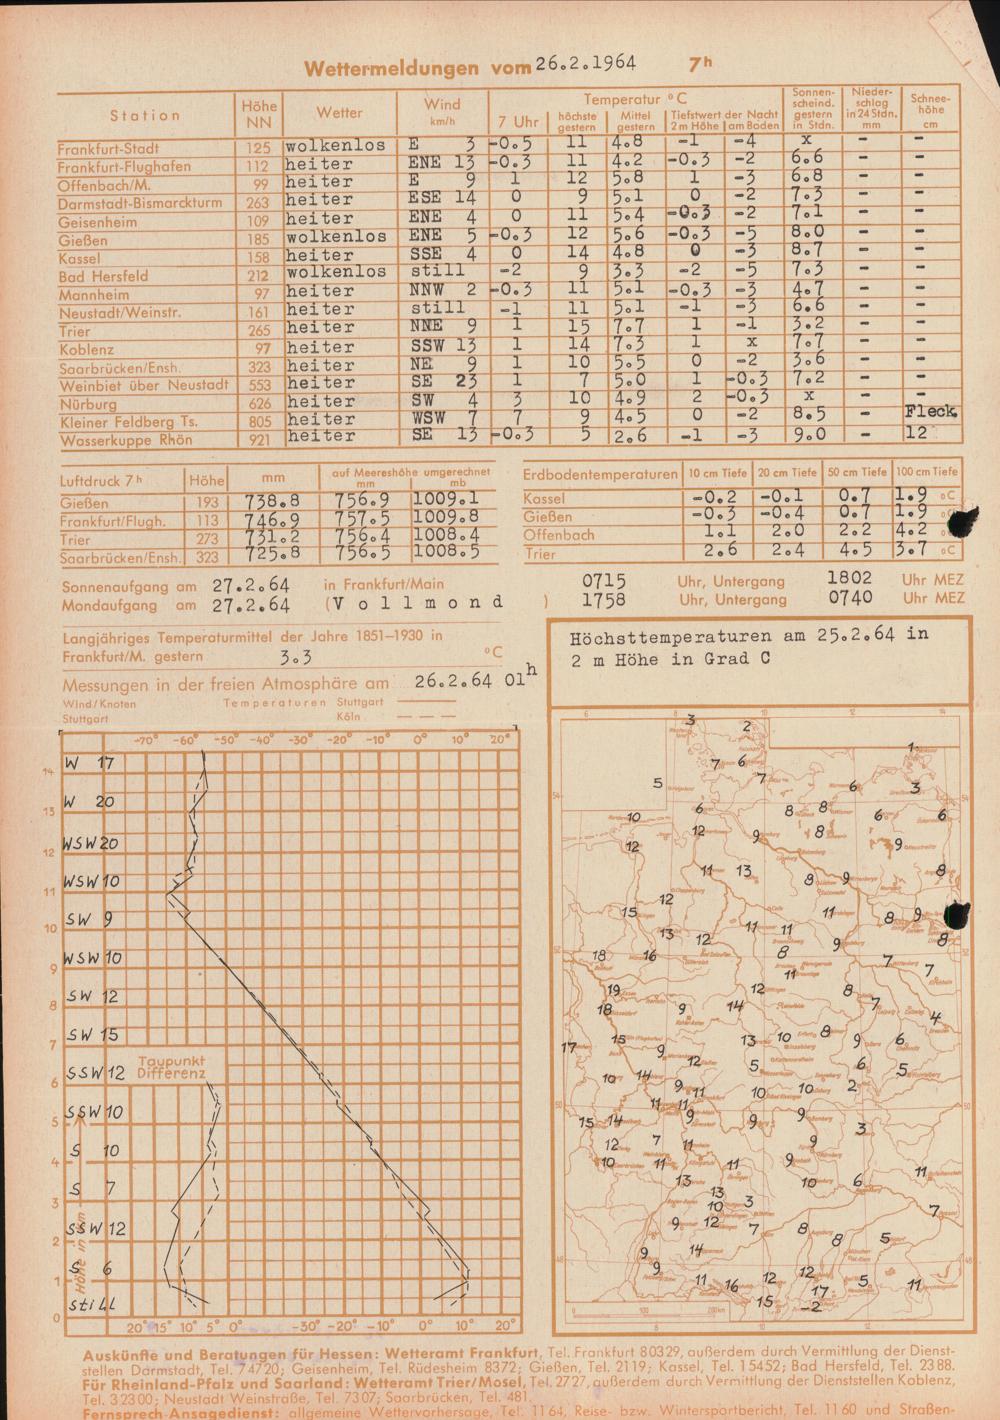 Wettermeldungen vom 26.2.1964 7h
Station Höhe NN Wetter Wind km/h Temperatur °C Sonnenscheind. gestern in Stdn. Niederschlag in 24 Stdn. mm Schneehöhe cm
7 Uhr höchste gestern Mittel gestern Tiefstwert der Nacht 2 m Höhe am Boden
Frankfurt-Stadt 125 wolkenlos E 3 -0.5 11 4.8 -1 -4 x - -
Frankfurt-Flughafen 112 heiter ENE 13 -0.3 11 4.2 -0.3 -2 6.6 - -
Offenbach/M. 99 heiter E 9 1 12 5.8 1 -3 6.8 - -
Darmstadt-Bismarckturm 263 heiter ESE 14 0 9 5.1 0 -2 7.3 - -
Geisenheim 109 heiter ENE 4 0 11 5.4 -0.3 -2 7.1 - -
Gießen 185 wolkenlos ENE 5 -0.3 12 5.6 -0.3 -5 8.0 - -
Kassel 158 heiter SSE 4 0 14 4.8 0 -3 8.7 - -
Bad Hersfeld 212 wolkenlos still -2 9 3.3 -2 -5 7.3 - -
Mannheim 97 heiter NNW 2 -0.3 11 5.1 -0.3 -3 4.7 - -
Neustadt/Weinstr. 161 heiter still -1 11 5.1 -1 -3 6.6 - -
Trier 265 heiter NNE 9 1 15 7.7 1 -1 3.2 - -
Koblenz 97 heiter SSW 13 1 14 7.3 1 x 7.7 - -
Saarbrücken/Ensh. 323 heiter NE 9 1 10 5.5 0 -2 3.6 - -
Weinbiet über Neustadt 553 heiter SE 23 1 7 5.0 1 -0.3 7.2 - -
Nürburg 626 heiter SW 4 3 10 4.9 2 -0.3 x - -
Kleiner Feldberg Ts. 805 heiter WSW 7 7 9 4.5 0 -2 8.5 - Fleck.
Wasserkuppe Rhön 921 heiter SE 13 -0.3 5 2.6 -1 -3 9.0 - 12
Luftdruck 7h Höhe mm auf Meereshöhe umgerechnet mm mb
Gießen 193 738.8 756.9 1009.1
Frankfurt/Flugh. 113 746.9 757.5 1009.8
Trier 273 731.2 756.4 1008.4
Saarbrücken/Ensh. 323 725.8 756.5 1008.5
Erdbodentemperaturen 10 cm Tiefe 20 cm Tiefe 50 cm Tiefe 100 cm Tiefe
Kassel -0.2 -0.1 0.7 1.9 °C
Gießen -0.3 -0.4 0.7 1.9 °C
Offenbach 1.1 2.0 2.2 4.2 °
Trier 2.6 2.4 4.5 3.7 °C
Sonnenaufgang am 27.2.64 in Frankfurt/Main 0715 Uhr, Untergang 1802 Uhr MEZ
Mondaufgang am 27.2.64 (Vollmond) 1758 Uhr, Untergang 0740 Uhr MEZ
Langjähriges Temperaturmittel der Jahre 1851–1930 in
Frankfurt/M. gestern 3.3 °C
Messungen in der freien Atmosphäre am 26.2.64 01h
Wind/Knoten Temperaturen Stuttgart
Stuttgart Köln
-70° -60° -50° -40° -30° -20° -10° 0° 10° 20°
14 W 17
13 W 20
12 WSW 20
11 WSW 10
10 SW 9
9 WSW 10
8 SW 12
7 SW 15
6 SSW 12
Taupunkt
Differenz
5 SSW 10
4 S 10
3 S 7
2 SSW 12
1 S 6
0 still
Höhe in km
20° 15° 10° 5° 0° -30° -20° -10° 0° 10° 20°
Höchsttemperaturen am 25.2.64 in
2 m Höhe in Grad C
6 8 10 12 14
3 2 1
7 6
5 7 6 3
10 6 8 8 6 6
12 12 9 8 9
11 13 8 9 8
15 12 11 8 9
13 12 11 11 9 8
18 16 8 7 7
11
19 12 8
18 9 14 7 4
17 15 9 13 10 8 9 6
12 5 6 5
10 14 9 11 10 10 2
11 11
15 14 9 9 9 3
12 7 11 9
10 11 11 9 11
13 10 6
13 10 3 7
9 12 7 8 8 5
9 14
9 11 16 12 12 5 11
17
15 -2
0 100 200 km
Auskünfte und Beratungen für Hessen: Wetteramt Frankfurt, Tel. Frankfurt 80329, außerdem durch Vermittlung der Dienst-
stellen Darmstadt, Tel. 74720; Geisenheim, Tel. Rüdesheim 8372; Gießen, Tel. 2119; Kassel, Tel. 15452; Bad Hersfeld, Tel. 2388.
Für Rheinland-Pfalz und Saarland: Wetteramt Trier/Mosel, Tel. 2727, außerdem durch Vermittlung der Dienststellen Koblenz,
Tel. 32300; Neustadt Weinstraße, Tel. 7307; Saarbrücken, Tel. 481.
Fernsprech-Ansagedienst: allgemeine Wettervorhersage, Tel. 1164, Reise- bzw. Wintersportbericht, Tel. 1160 und Straßen-